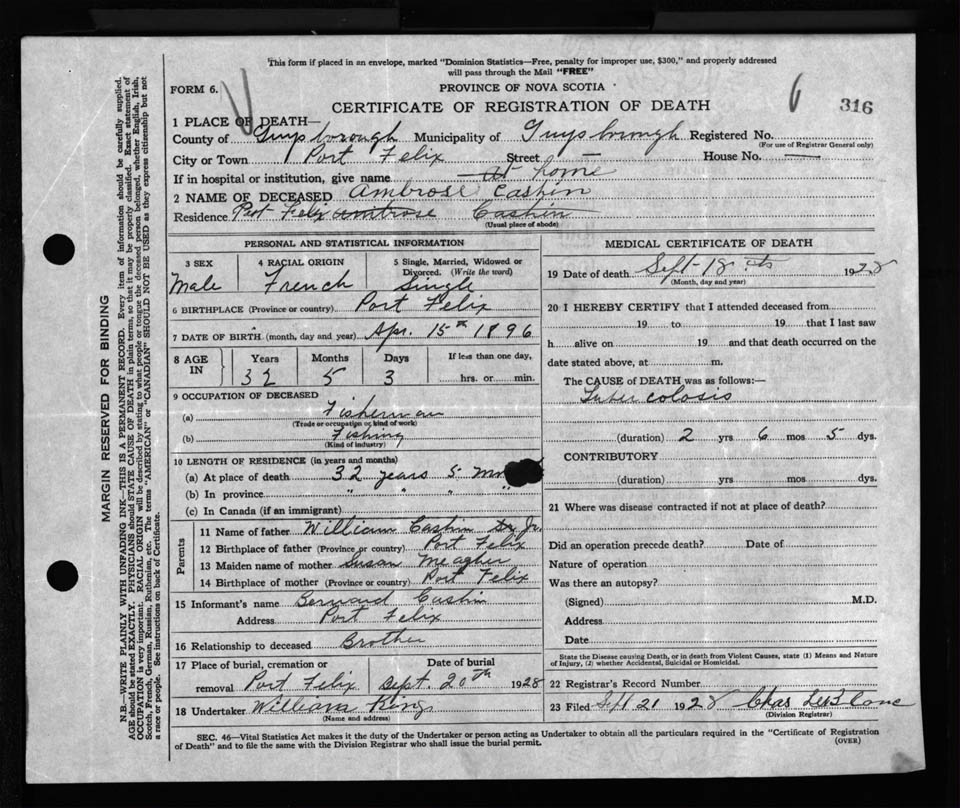 This form if placed in an envelope, marked "Dominion Statistics—Free, penalty for improper use, $300," and properly addressed
will pass through the Mail "FREE"
FORM 6.
PROVINCE OF NOVA SCOTIA
CERTIFICATE OF REGISTRATION OF DEATH
6
316
1 PLACE OF DEATH—
County of Guysborough Municipality of Guysborough Registered No.
(For use of Registrar General only)
City or Town Port Felix Street — House No. —
If in hospital or institution, give name At home
2 NAME OF DECEASED Ambrose Cashin
Residence Port Felix Ambrose Cashin
(Usual place of abode)
PERSONAL AND STATISTICAL INFORMATION
3 SEX 4 RACIAL ORIGIN 5 Single, Married, Widowed or
Divorced. (Write the word)
Male French Single
6 BIRTHPLACE (Province or country) Port Felix
7 DATE OF BIRTH (month, day and year) Apr. 15th 1896
8 AGE IN Years Months Days If less than one day,
32 5 3 hrs. or min.
9 OCCUPATION OF DECEASED
(a) Fisherman
(Trade or occupation or kind of work)
(b) Fishing
(Kind of industry)
10 LENGTH OF RESIDENCE (in years and months)
(a) At place of death 32 years 5
(b) In province " " " "
(c) In Canada (if an immigrant)
Parents
11 Name of father William Cashin Jr.
12 Birthplace of father (Province or country) Port Felix
13 Maiden name of mother Susan Meagher
14 Birthplace of mother (Province or country) Port Felix
15 Informant's name Bernard Cashin
Address Port Felix
16 Relationship to deceased Brother
17 Place of burial, cremation or Date of burial
removal Port Felix Sept. 20th 1928
18 Undertaker William King
(Name and address)
MEDICAL CERTIFICATE OF DEATH
19 Date of death Sept 18th 1928
(Month, day and year)
20 I HEREBY CERTIFY that I attended deceased from
19 to 19 that I last saw
h alive on 19 and that death occurred on the
date stated above, at m.
The CAUSE of DEATH was as follows:—
Tubercolosis
(duration) 2 yrs 6 mos 5 dys.
CONTRIBUTORY
(duration) yrs mos dys.
21 Where was disease contracted if not at place of death?
Did an operation precede death? Date of
Nature of operation
Was there an autopsy?
(Signed) M.D.
Address
Date
State the Disease causing Death, or in death from Violent Causes, state (1) Means and Nature
of Injury, (2) whether Accidental, Suicidal or Homicidal.
22 Registrar's Record Number
23 Filed Sept 21 1928 Chas LeBlanc
(Division Registrar)
SEC. 46—Vital Statistics Act makes it the duty of the Undertaker or person acting as Undertaker to obtain all the particulars required in the "Certificate of Registration
of Death" and to file the same with the Division Registrar who shall issue the burial permit.
(OVER)
MARGIN RESERVED FOR BINDING
N.B.—WRITE PLAINLY WITH UNFADING INK—THIS IS A PERMANENT RECORD. Every item of information should be carefully supplied.
AGE should be stated EXACTLY. PHYSICIANS should STATE CAUSE OF DEATH in plain terms, so that it may be properly classified. Exact statement of
OCCUPATION is very important. RACIAL ORIGIN will be described by stating to what people or tongue the deceased person belonged, whether English, Irish,
Scotch, French, German, Russian, Ruthenian, etc. The terms "AMERICAN" or "CANADIAN" SHOULD NOT BE USED as they express citizenship but not
a race or people. See instructions on back of Certificate.